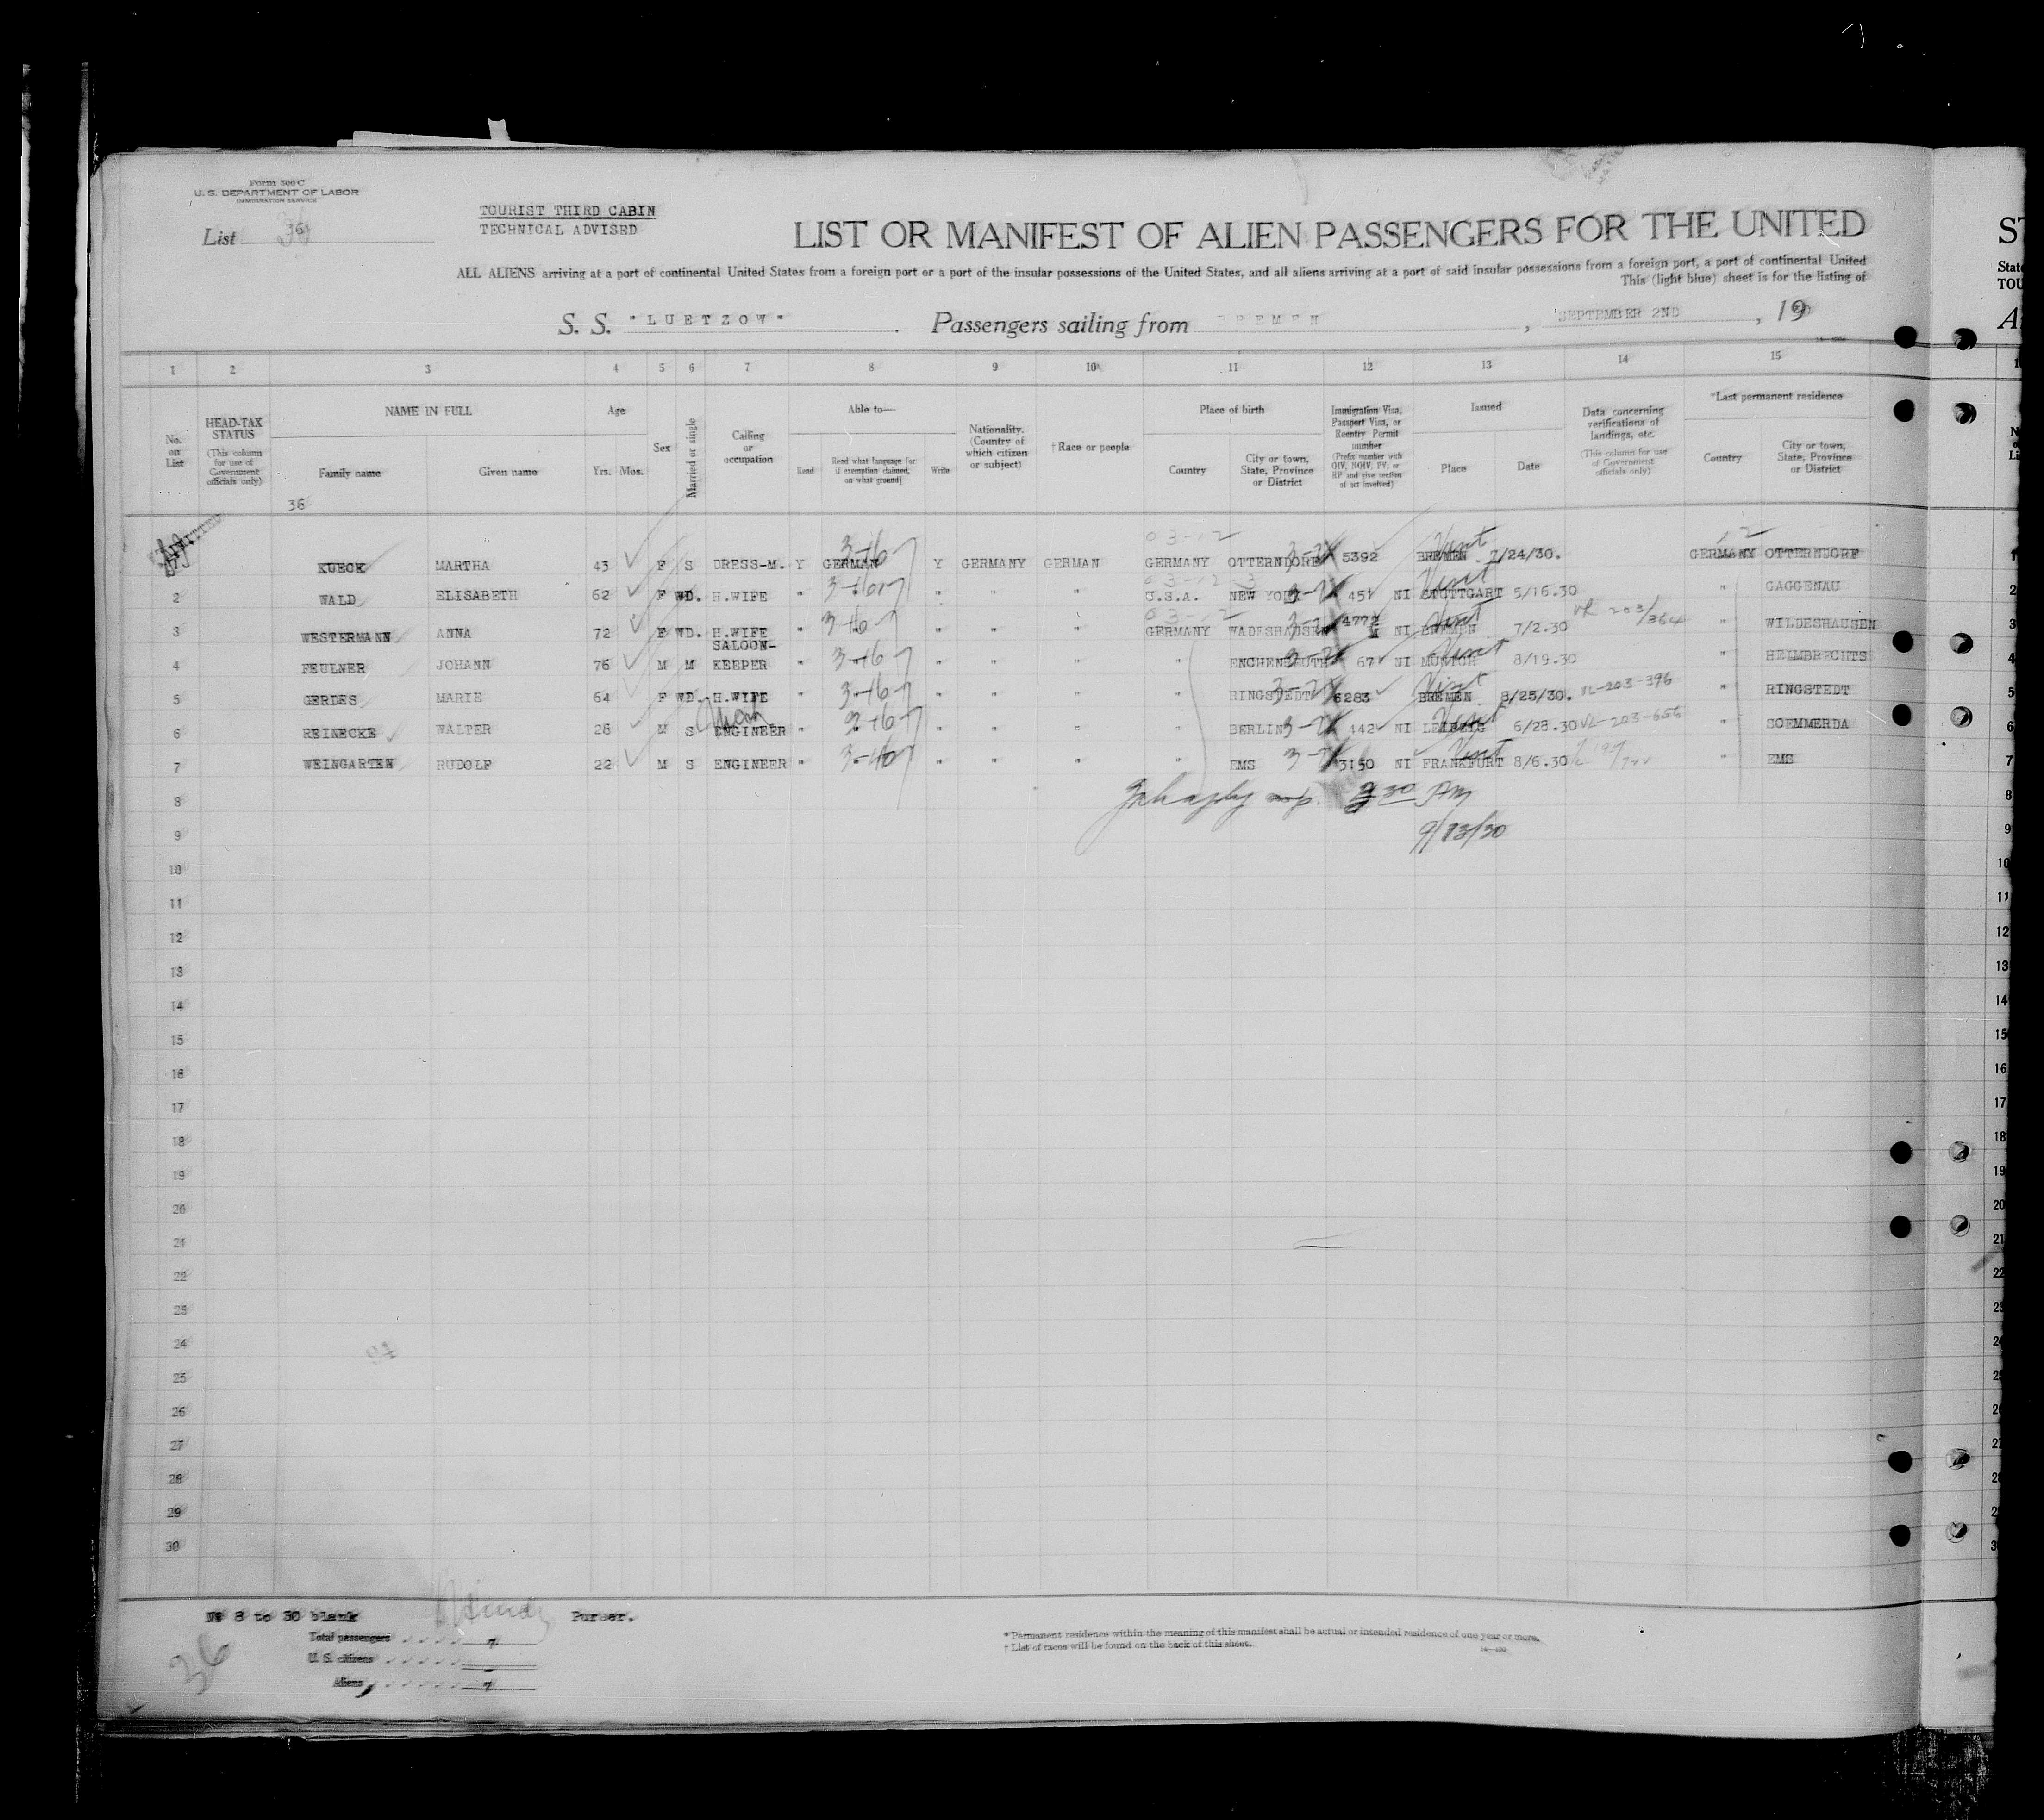 Form 500 C
U. S. DEPARTMENT OF LABOR
IMMIGRATION SERVICE
List 36
TOURIST THIRD CABIN
TECHNICAL ADVISED
LIST OR MANIFEST OF ALIEN PASSENGERS FOR THE UNITED
ALL ALIENS arriving at a port of continental United States from a foreign port or a port of the insular possessions of the United States, and all aliens arriving at a port of said insular possessions from a foreign port, a port of continental United
This (light blue) sheet is for the listing of
S. S. "LUETZOW". Passengers sailing from BREMEN, SEPTEMBER 2ND, 19
1 2 3 4 5 6 7 8 9 10 11 12 13 14 15
No. on List
HEAD-TAX STATUS (This column for use of Government officials only)
NAME IN FULL Family name Given name
Age Yrs. Mos.
Sex
Married or single
Calling or occupation
Able to— Read Read what language [or if exemption claimed, on what ground] Write
Nationality. (Country of which citizen or subject)
†Race or people
Place of birth Country City or town, State, Province or District
Immigration Visa, Passport Visa, or Reentry Permit number (Prefix number with QIV, NQIV, PV, or RP and give section of act involved)
Issued Place Date
Data concerning verifications of landings, etc. (This column for use of Government officials only)
*Last permanent residence Country City or town, State, Province or District
36
KUECK MARTHA 43 F S DRESS-M. Y GERMAN Y GERMANY GERMAN GERMANY OTTERNDORF 5392 BREMEN Visit 7/24/30. GERMANY OTTERNDORF 1
2 WALD ELISABETH 62 F WD. H.WIFE " " " " U.S.A. NEW YORK 451 NI STUTTGART Visit 5/16.30 " GAGGENAU 2
3 WESTERMANN ANNA 72 F WD. H.WIFE " " " " GERMANY WADESHAUSEN 4772 M NI BREMEN Visit 7/2.30 VL 203/364 " WILDESHAUSEN 3
4 FEULNER JOHANN 76 M M SALOON-KEEPER " " " " " ENCHENREUTH 67 NI MUNICH Visit 8/19.30 " HELMBRECHTS 4
5 GERDES MARIE 64 F WD. H.WIFE " " " " " RINGSTEDT 6283 BREMEN Visit 8/25/30. VL-203-396 " RINGSTEDT 5
6 REINECKE WALTER 28 M S Mech ENGINEER " " " " " BERLIN 442 NI LEIPZIG Visit 6/28.30 VL-203-656 " SOEMMERDA 6
7 WEINGARTEN RUDOLF 22 M S ENGINEER " " " " " EMS 3150 NI FRANKFURT Visit 8/6.30 " EMS 7
8 30 PM 8
9 9/13/30 9
10 10
11 11
12 12
13 13
14 14
15 15
16 16
17 17
18 18
19 19
20 20
21 21
22 22
23 23
24 24
25 25
26 26
27 27
28 28
29
30
No 8 to 30 blank Purser.
Total passengers 7
U. S. citizens
Aliens 7
36
*Permanent residence within the meaning of this manifest shall be actual or intended residence of one year or more.
†List of races will be found on the back of this sheet.